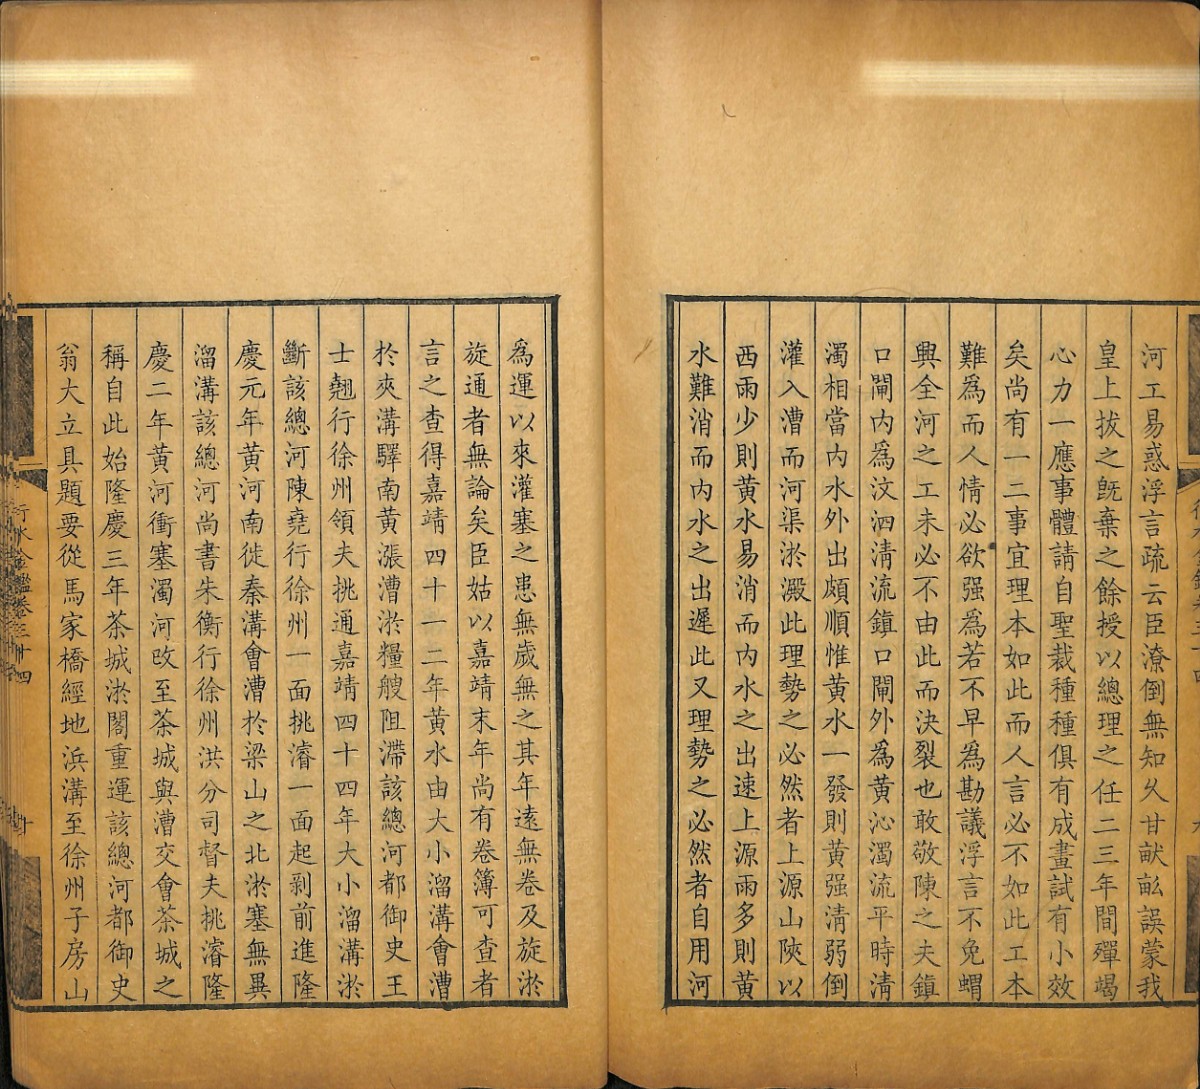 河工易惑浮言疏云臣潦倒無知久甘畎畝誤蒙我
皇上拔之旣棄之餘授以總理之任二三年間殫竭
心力一應事體請自聖裁種種俱有成畫試有小效
矣尚有一二事宜理本如此而人言必不如此工本
難爲而人情必欲强爲若不早爲勘議浮言不免蝟
興全河之工未必不由此而決裂也敢敬陳之夫鎭
口閘內爲汶泗淸流鎭口閘外爲黃沁濁流平時淸
濁相當內水外出頗順惟黃水一發則黃强淸弱倒
灌入漕而河渠淤澱此理勢之必然者上源山陝以
西雨少則黃水易消而內水之出速上源雨多則黃
水難消而內水之出遲此又理勢之必然者自用河
爲運以來灌塞之患無歲無之其年遠無卷及旋淤
旋通者無論矣臣姑以嘉靖末年尚有卷簿可查者
言之查得嘉靖四十一二年黃水由大小溜溝會漕
於夾溝驛南黃漲漕淤糧艘阻滯該總河都御史王
士翹行徐州領夫挑通嘉靖四十四年大小溜溝淤
斷該總河陳堯行徐州一面挑濬一面起剝前進隆
慶元年黃河南徙秦溝會漕於梁山之北淤塞無異
溜溝該總河尚書朱衡行徐州洪分司督夫挑濬隆
慶二年黃河衝塞濁河改至茶城與漕交會茶城之
稱自此始隆慶三年茶城淤閣重運該總河都御史
翁大立具題要從馬家橋經地浜溝至徐州子房山
行水金鑑卷三十四